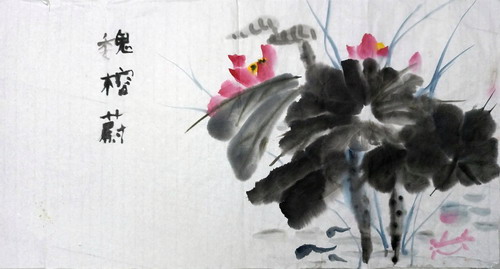 魏榕蔚